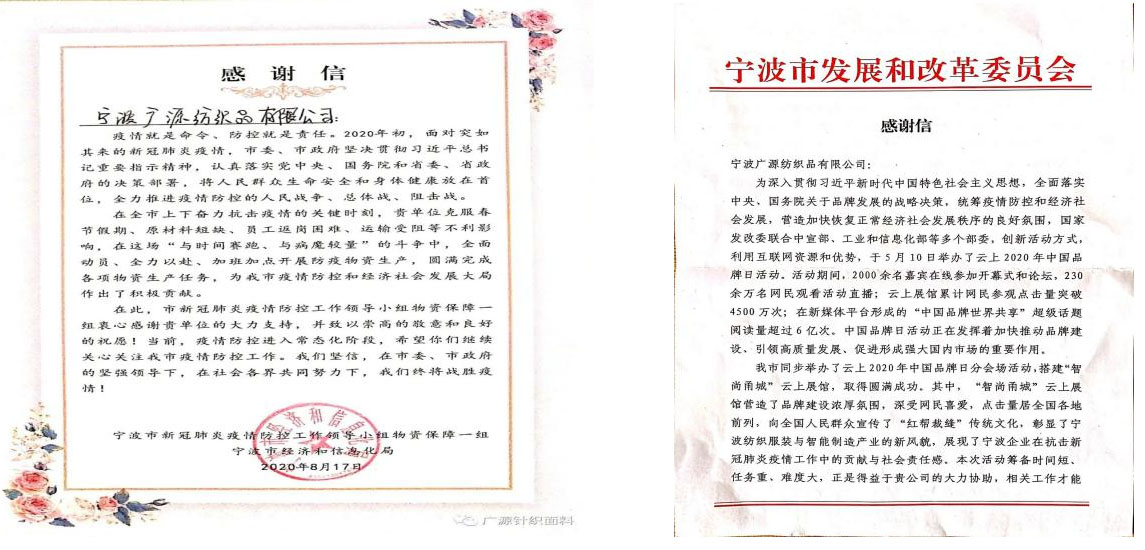 感谢信
宁波广源纺织品有限公司:
疫情就是命令、防控就是责任。2020年初，面对突如
其来的新冠肺炎疫情，市委、市政府坚决贯彻习近平总书
记重要指示精神，认真落实党中央、国务院和省委、省政
府的决策部署，将人民群众生命安全和身体健康放在首
位，全力推进疫情防控的人民战争、总体战、阻击战。
在全市上下奋力抗击疫情的关键时刻，贵单位克服春
节假期、原材料短缺、员工返岗困难、运输受阻等不利影
响，在这场“与时间赛跑、与病魔较量”的斗争中，全面
动员、全力以赴、加班加点开展防疫物资生产，圆满完成
各项物资生产任务，为我市疫情防控和经济社会发展大局
作出了积极贡献。
在此，市新冠肺炎疫情防控工作领导小组物资保障一
组衷心感谢贵单位的大力支持，并致以崇高的敬意和良好
的祝愿！当前，疫情防控进入常态化阶段，希望你们继续
关心关注我市疫情防控工作。我们坚信，在市委、市政府
的坚强领导下，在社会各界共同努力下，我们终将战胜疫
情！
宁波市新冠肺炎疫情防控工作领导小组物资保障一组
宁波市经济和信息化局
2020年8月17日
广源针织面料
宁波市发展和改革委员会
感谢信
宁波广源纺织品有限公司：
为深入贯彻习近平新时代中国特色社会主义思想，全面落实
中央、国务院关于品牌发展的战略决策，统筹疫情防控和经济社
会发展，营造加快恢复正常经济社会发展秩序的良好氛围，国家
发改委联合中宣部、工业和信息化部等多个部委，创新活动方式，
利用互联网资源和优势，于5月10日举办了云上2020年中国品
牌日活动。活动期间，2000余名嘉宾在线参加开幕式和论坛，230
余万名网民观看活动直播；云上展馆累计网民参观点击量突破
4500万次；在新媒体平台形成的“中国品牌世界共享”超级话题
阅读量超过6亿次。中国品牌日活动正在发挥着加快推动品牌建
设、引领高质量发展、促进形成强大国内市场的重要作用。
我市同步举办了云上2020年中国品牌日分会场活动，搭建“智
尚甬城”云上展馆，取得圆满成功。其中，“智尚甬城”云上展
馆营造了品牌建设浓厚氛围，深受网民喜爱，点击量居全国各地
前列，向全国人民群众宣传了“红帮裁缝”传统文化，彰显了宁
波纺织服装与智能制造产业的新风貌，展现了宁波企业在抗击新
冠肺炎疫情工作中的贡献与社会责任感。本次活动筹备时间短、
任务重、难度大，正是得益于贵公司的大力协助，相关工作才能